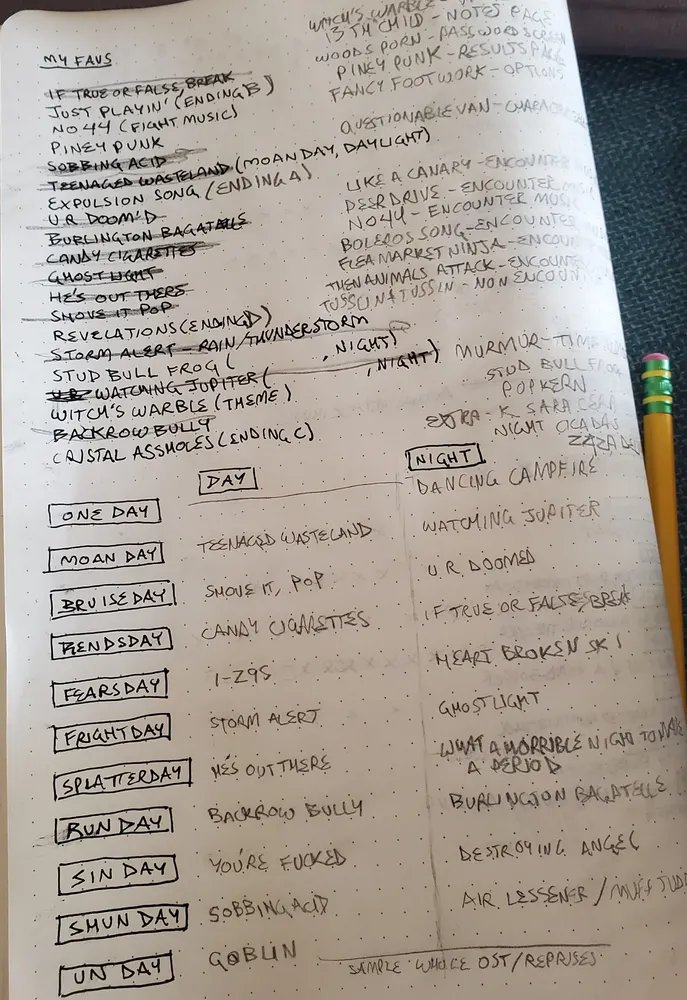 MY FAVS
IF TRUE OR FALSE, BREAK
JUST PLAYIN' (ENDING B)
NO 44 (FIGHT MUSIC)
PINEY PUNK
SOBBING ACID
TEENAGED WASTELAND (MOANDAY, DAYLIGHT)
EXPULSION SONG (ENDING A)
U.R. DOOM'D
BURLINGTON BAGATELLE
CANDY CIGARETTES
GHOSTLIGHT
HE'S OUT THERE
SHOVE IT POP
REVELATIONS (ENDING D)
STORM ALERT - RAIN/THUNDERSTORM
STUD BULL FROG ( , NIGHT)
WATCHING JUPITER ( , NIGHT)
WITCH'S WARBLE (THEME)
BACKROW BULLY
CRISTAL ASSHOLES (ENDING C)
WITCH'S WARBLE -
13TH CHILD - NOTES PAGE
WOODS PORN - PASSWORD SCREEN
PINEY PUNK - RESULTS PAGE
FANCY FOOTWORK - OPTIONS
QUESTIONABLE VAN -
LIKE A CANARY - ENCOUNTER
DEER DRIVE - ENCOUNTER
NO 44 - ENCOUNTER MUSIC
BOLEROS SONG - ENCOUNTER
FLEA MARKET NINJA -
THEN ANIMALS ATTACK - ENCOUNTER
TUSSIN & TUSSIN - NON
MURMUR -
STUD BULL FROG
POPKERN
EXTRA - K. SARA SARA
NIGHT CICADAS
DAY
NIGHT
ONE DAY
DANCING CAMPFIRE
MOAN DAY
TEENAGED WASTELAND
WATCHING JUPITER
BRUISEDAY
SHOVE IT, POP
U R DOOMED
CANDY CIGARETTES
IF TRUE OR FALSE, BREAK
FEARSDAY
I-295
HEART BROKEN SKI
FRIGHTDAY
STORM ALERT
GHOSTLIGHT
SPLATTERDAY
HE'S OUT THERE
WHAT A HORRIBLE NIGHT TO HAVE
A PERIOD
RUN DAY
BACKROW BULLY
BURLINGTON BAGATELLE
SIN DAY
YOU'RE FUCKED
DESTROYING ANGEL
SHUN DAY
SOBBING ACID
AIR LESSENER /
UN DAY
GOBLIN
SAMPLE WHOLE OST/REPRISES